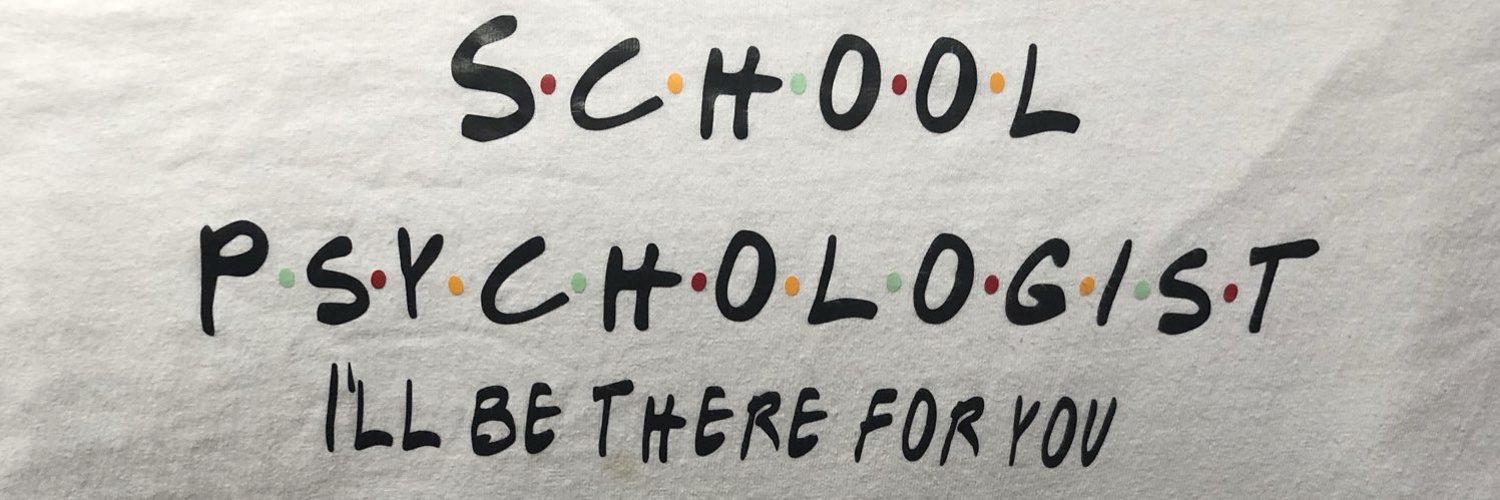 S•C•H•O•O•L
P•S•Y•C•H•O•L•O•G•I•S•T
I'LL BE THERE FOR YOU